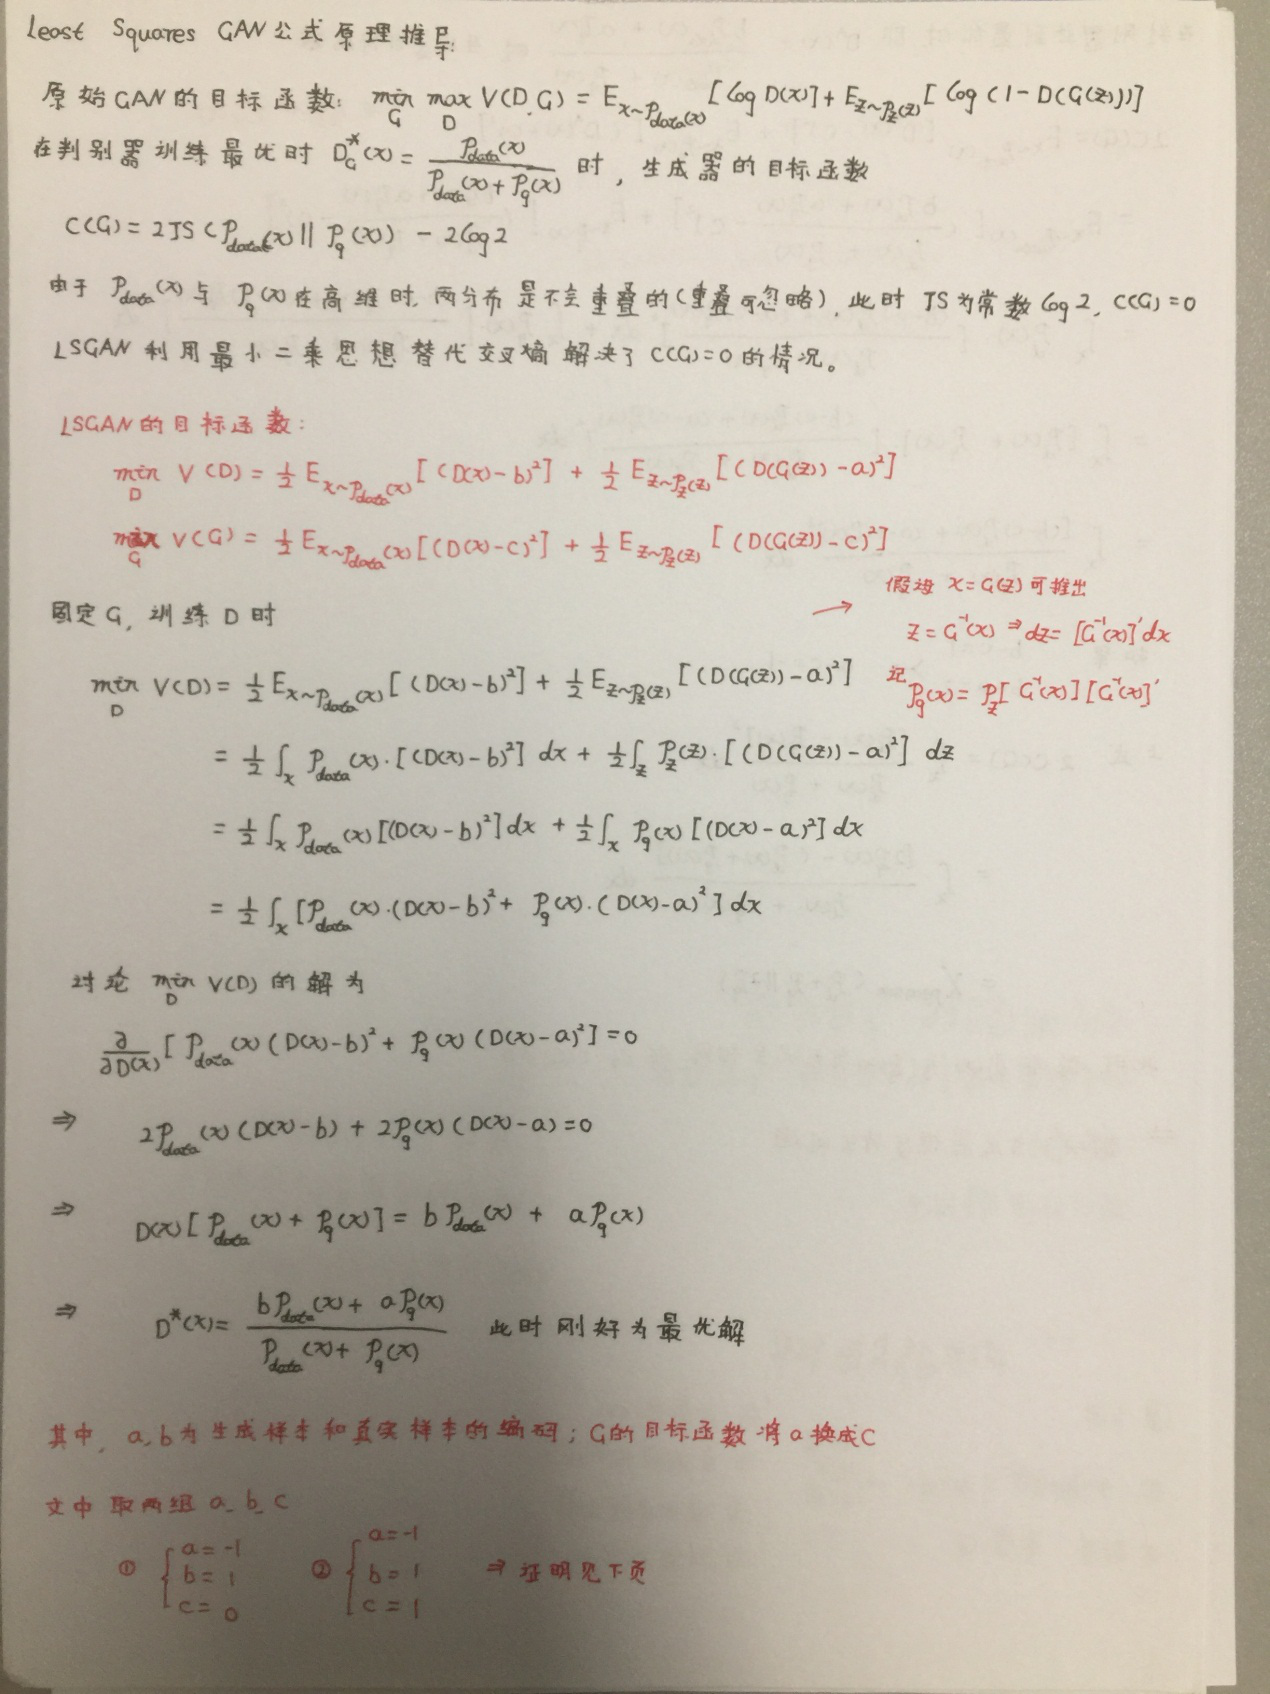 Least Squares GAN公式原理推导:
原始GAN的目标函数: min_G max_D V(D,G) = E_{x~P_data(x)}[log D(x)] + E_{z~P_z(z)}[log(1-D(G(z)))]
在判别器训练最优时 D_G^*(x) = P_data(x) / (P_data(x)+P_g(x)) 时,生成器的目标函数
C(G) = 2JS(P_data(x) || P_g(x)) - 2log2
由于 P_data(x) 与 P_g(x) 在高维时,两分布是不会重叠的(重叠可忽略),此时 JS为常数 log2, C(G)=0
LSGAN 利用最小二乘思想替代交叉熵解决了 C(G)=0 的情况。
LSGAN的目标函数:
min_D V(D) = 1/2 E_{x~P_data(x)}[(D(x)-b)²] + 1/2 E_{z~P_z(z)}[(D(G(z))-a)²]
min_G V(G) = 1/2 E_{x~P_data(x)}[(D(x)-c)²] + 1/2 E_{z~P_z(z)}[(D(G(z))-c)²]
固定G, 训练D时
→ 假设 x=G(z) 可推出
z = G⁻¹(x) ⇒ dz = [G⁻¹(x)]'dx
记 P_g(x) = P_z[G⁻¹(x)][G⁻¹(x)]'
min_D V(D) = 1/2 E_{x~P_data(x)}[(D(x)-b)²] + 1/2 E_{z~P_z(z)}[(D(G(z))-a)²]
= 1/2 ∫_x P_data(x)·[(D(x)-b)²] dx + 1/2 ∫_z P_z(z)·[(D(G(z))-a)²] dz
= 1/2 ∫_x P_data(x)[(D(x)-b)²]dx + 1/2 ∫_x P_g(x)[(D(x)-a)²]dx
= 1/2 ∫_x [P_data(x)·(D(x)-b)² + P_g(x)·(D(x)-a)²]dx
讨论 min_D V(D) 的解为
∂/∂D(x) [P_data(x)(D(x)-b)² + P_g(x)(D(x)-a)²] = 0
⇒ 2P_data(x)(D(x)-b) + 2P_g(x)(D(x)-a) = 0
⇒ D(x)[P_data(x) + P_g(x)] = bP_data(x) + aP_g(x)
⇒ D*(x) = (bP_data(x) + aP_g(x)) / (P_data(x) + P_g(x)) 此时刚好为最优解
其中, a,b为生成样本和真实样本的编码; G的目标函数将a换成C
文中取两组 a、b、c
① { a=-1 b=1 c=0 ② { a=-1 b=1 c=1 ⇒ 证明见下页